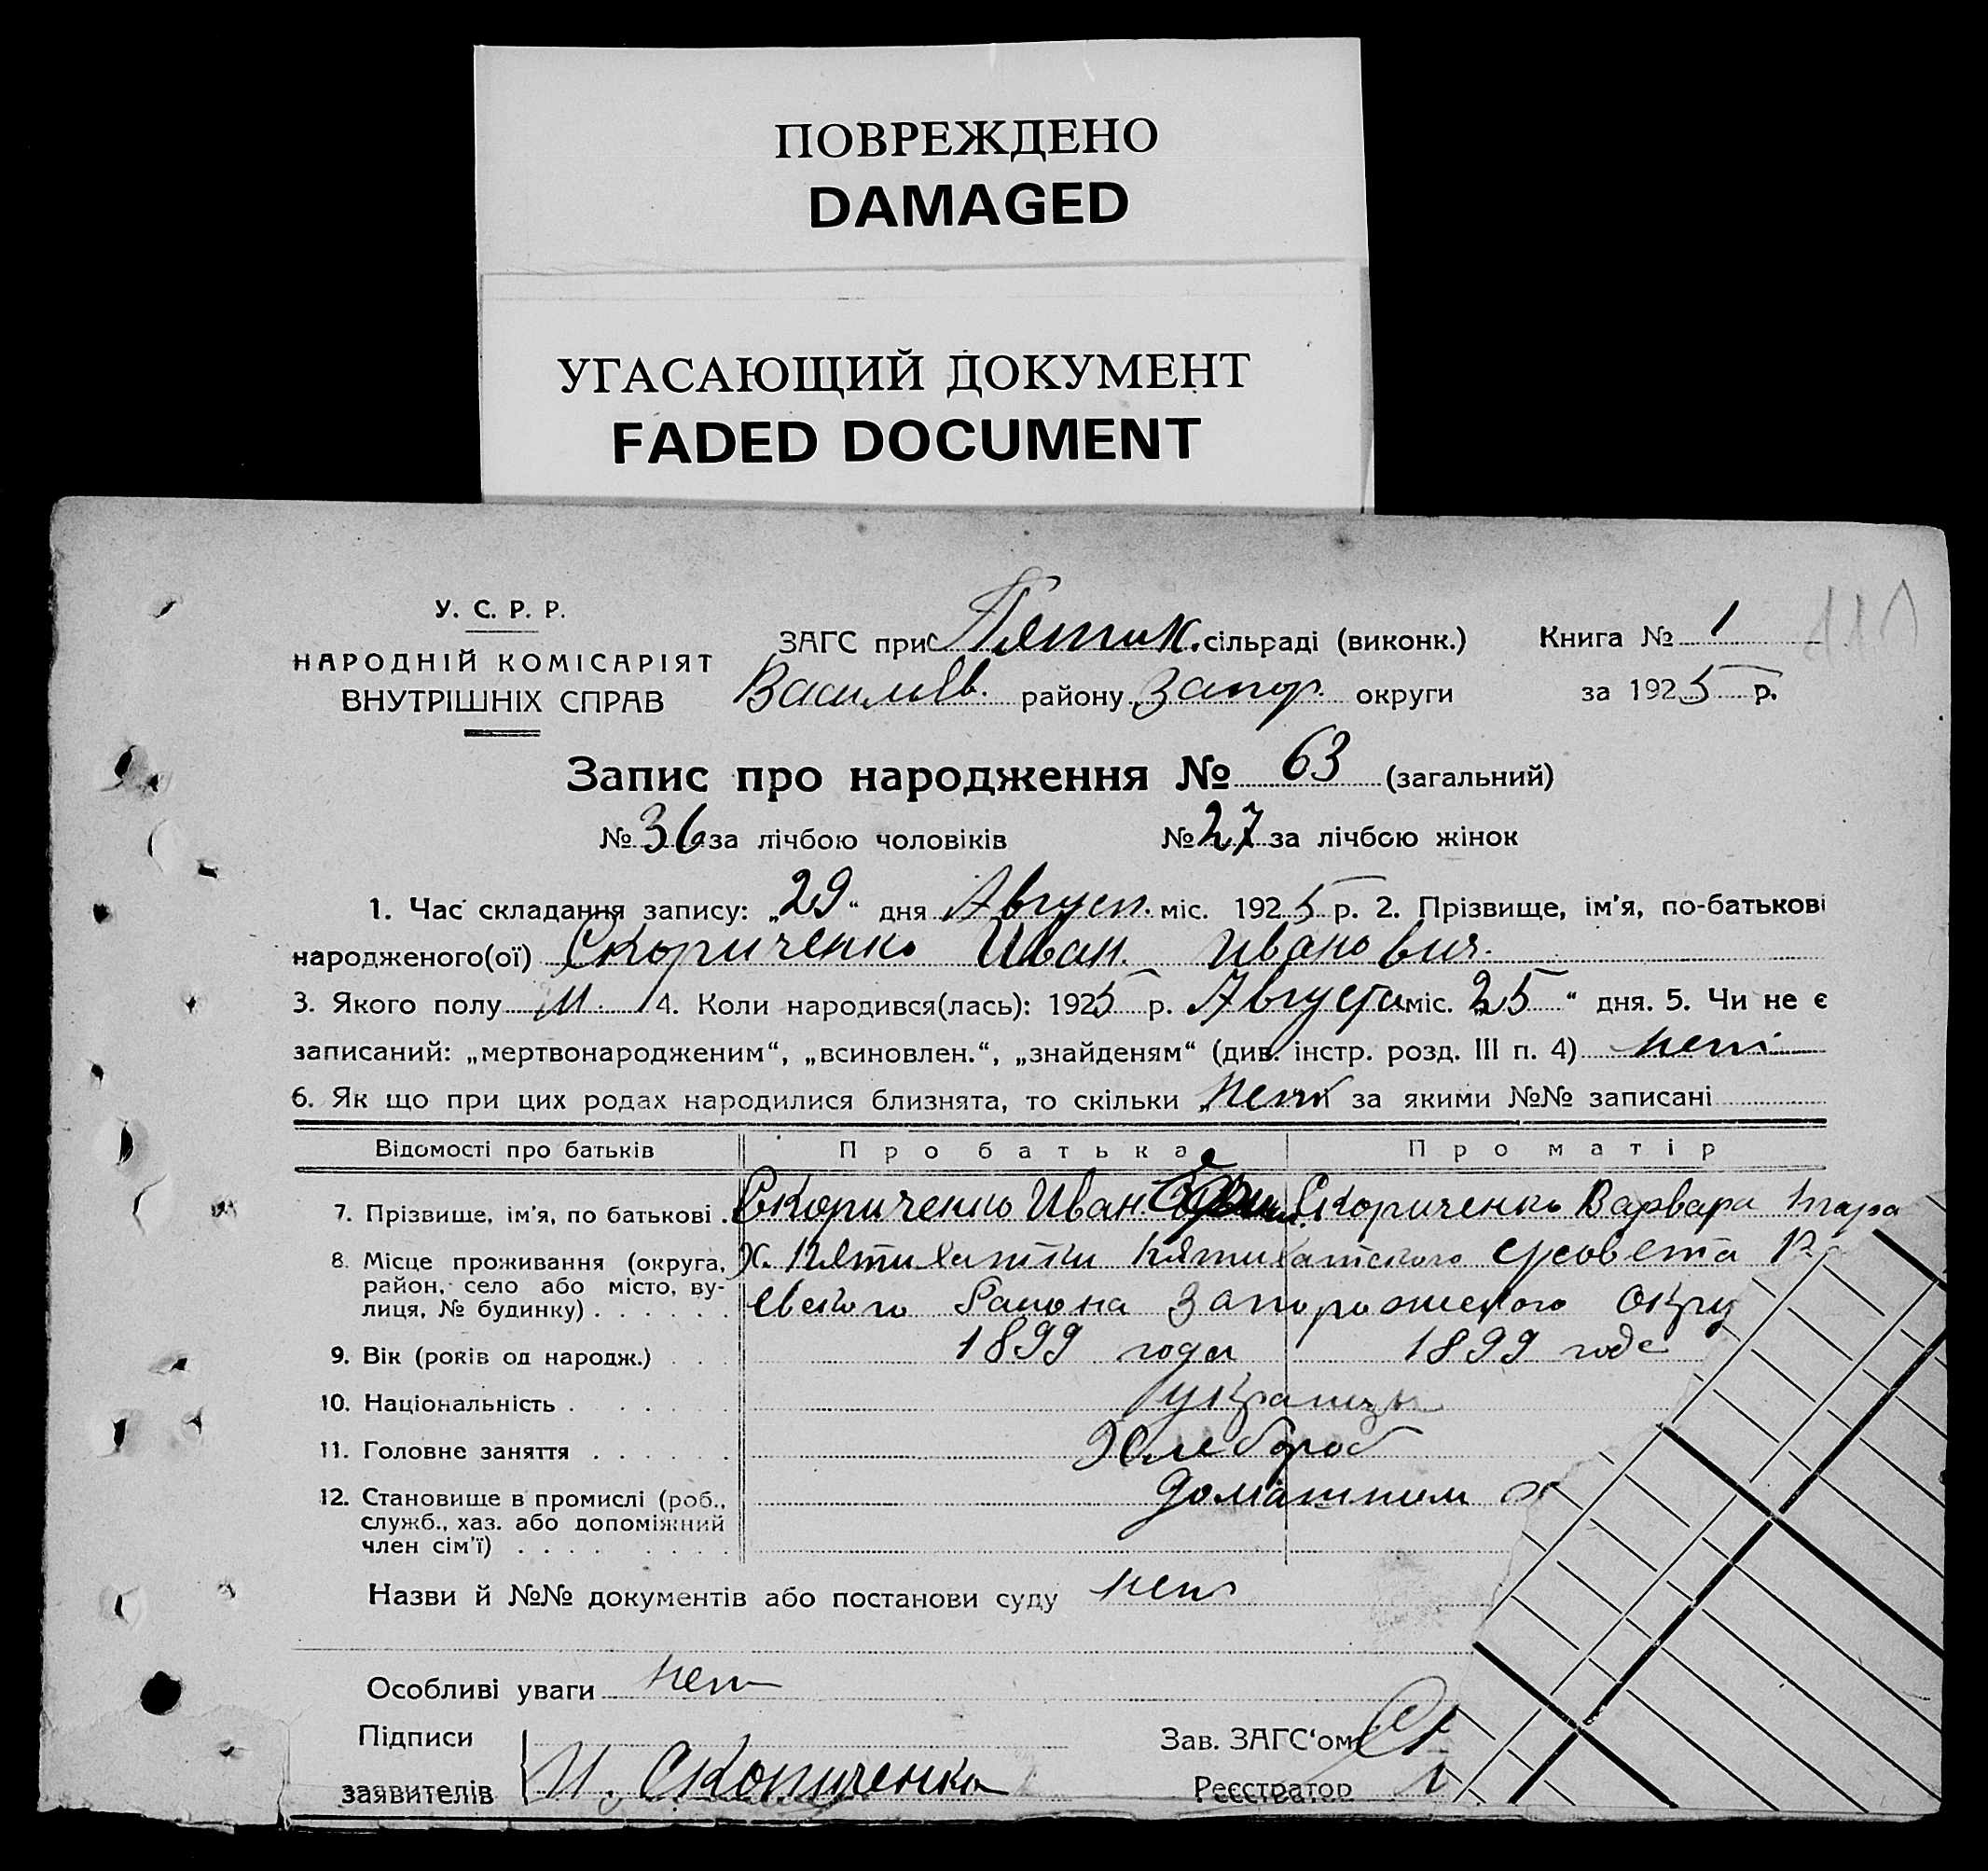 ПОВРЕЖДЕНО
DAMAGED
УГАСАЮЩИЙ ДОКУМЕНТ
FADED DOCUMENT
У. С. Р. Р.
НАРОДНІЙ КОМІСАРІЯТ
ВНУТРІШНІХ СПРАВ
ЗАГС при Пятих. сільраді (виконк.)
Книга № 1
Васильев. району Запор. округи
за 1925 р.
Запис про народження № 63 (загальний)
№ 36 за лічбою чоловіків № 27 за лічбою жінок
1. Час складання запису: „29“ дня Август. міс. 1925 р. 2. Прізвище, ім'я, по-батькові
народженого(ої) Скориченко Иван Иванович.
3. Якого полу м. 4. Коли народився(лась): 1925 р. Августа міс. „25“ дня. 5. Чи не є
записаний: „мертвонародженим“, „всиновлен.“, „знайденям“ (див. інстр. розд. III п. 4) нет
6. Як що при цих родах народилися близнята, то скільки нет за якими №№ записані
Відомості про батьків Про батька Про матір
7. Прізвище, ім'я, по батькові . Скориченко Иван Скориченко Варвара Тара
8. Місце проживання (округа, Х. Пятихатки Пятихатского сусовета
район, село або місто, ву-
лиця, № будинку) . . . . . . евского Района Запорожского Окру
9. Вік (років од народж.) . . . 1899 года 1899 года
10. Національність . . . . . украинцы
11. Головне заняття . . . . . . Хлебороб
12. Становище в промислі (роб., домашнем
служб., хаз. або допоміжний
член сім'ї) . . . . . . . .
Назви й №№ документів або постанови суду нет
Особливі уваги нет
Підписи
Зав. ЗАГС'ом
заявителів И. Скориченко
Реєстратор